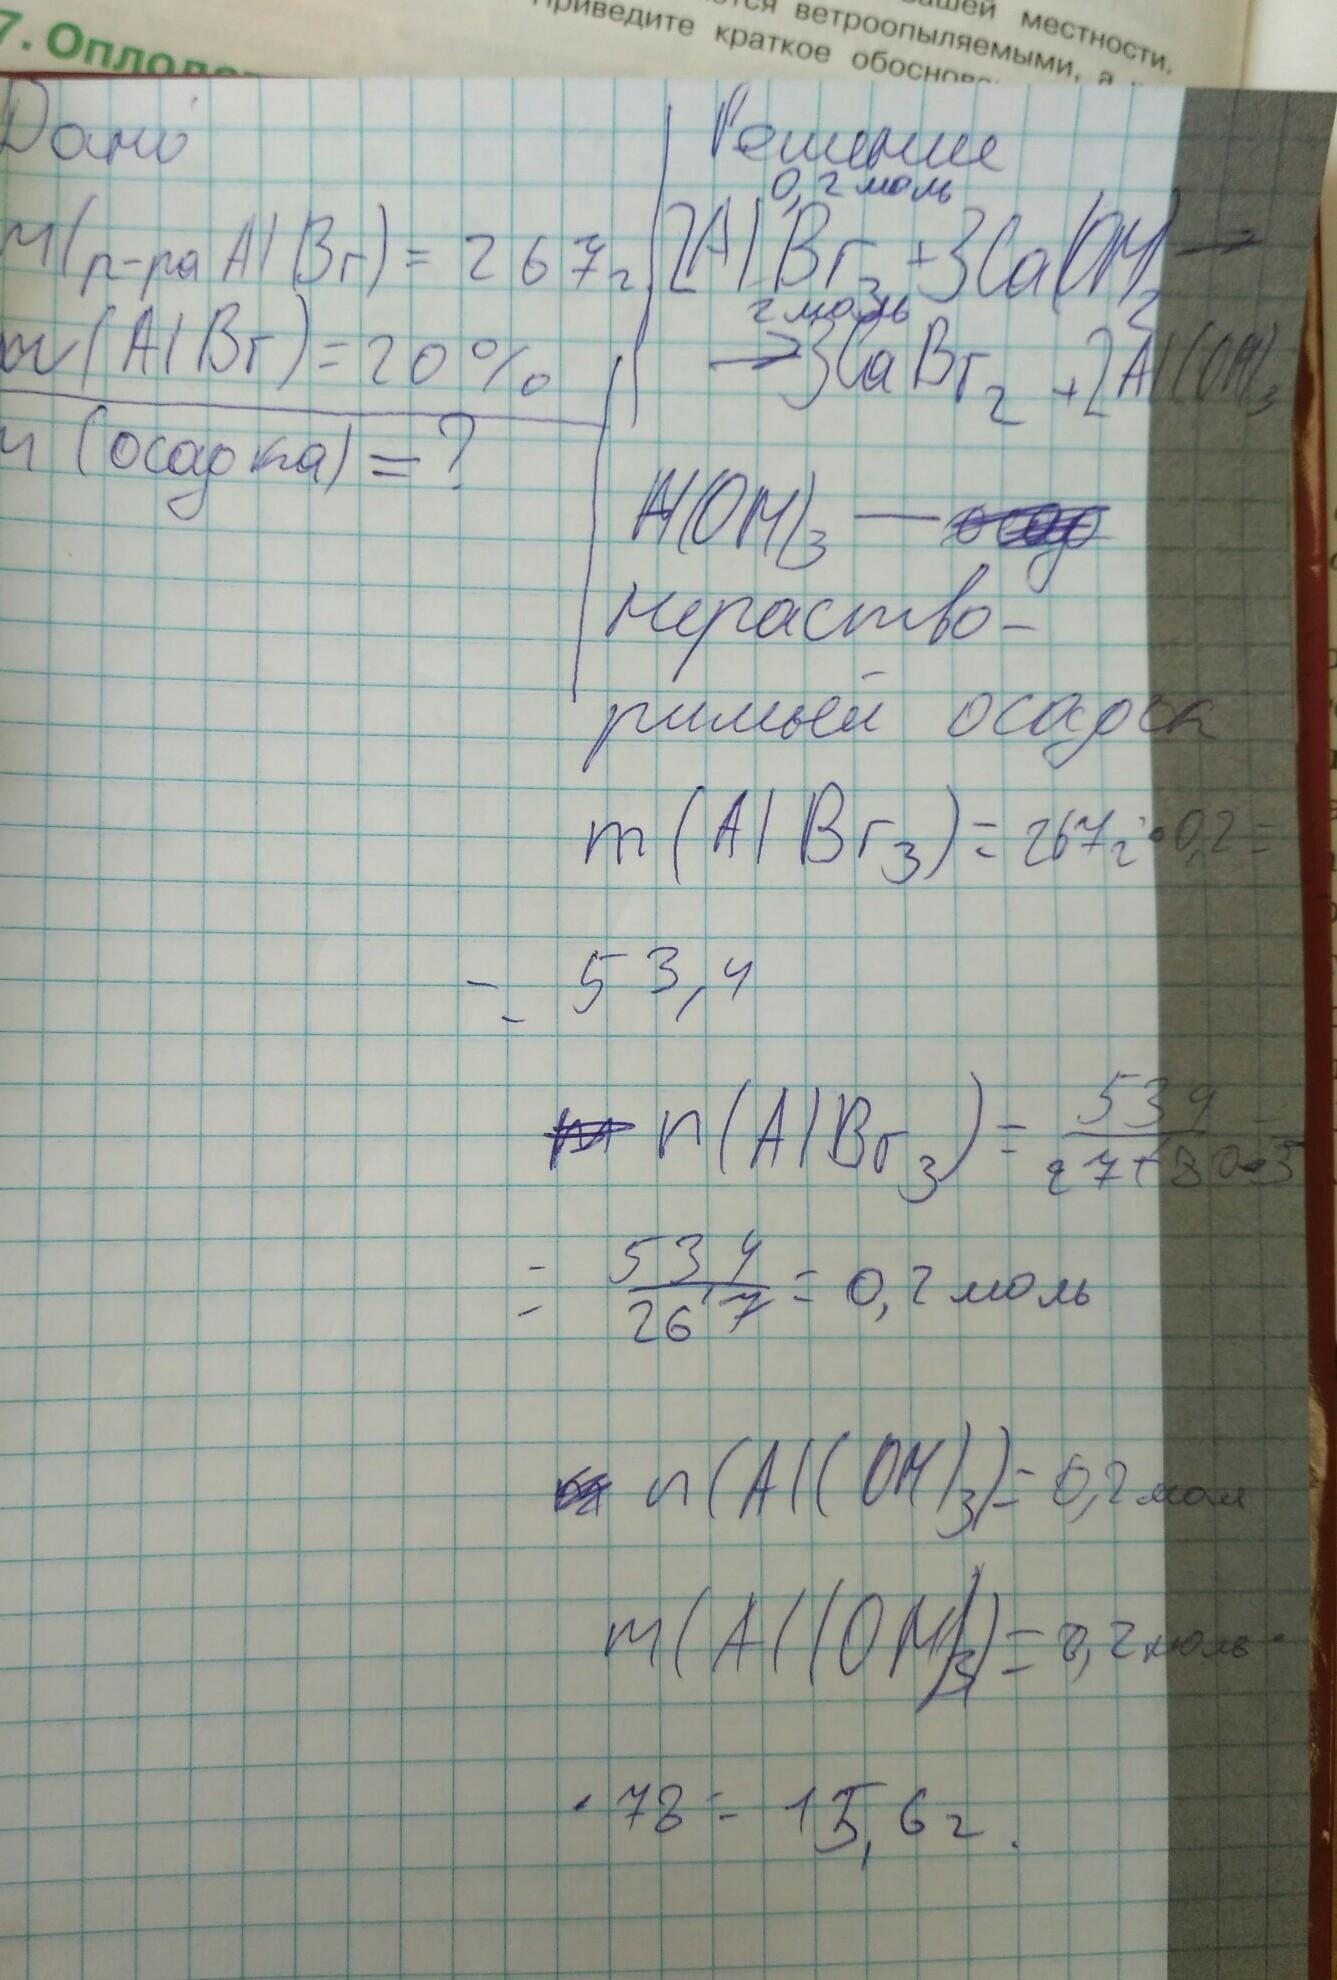 вашей местности.
ются ветроопыляемыми, а
Приведите краткое обоснова
7. Оплодот
Дано
m(р-ра AlBr) = 267г
w(AlBr) = 20%
m(осадка) = ?
Решение
0,2 моль
2AlBr3 + 3Ca(OH)2 →
2 моль
→ 3CaBr2 + 2Al(OH)3
Al(OH)3 —
нераство-
римый осадок
m(AlBr3) = 267г · 0,2 =
= 53,4
n(AlBr3) = 53,4 / 27+80·3 =
= 53,4 / 267 = 0,2 моль
n(Al(OH)3) = 0,2 мол
m(Al(OH)3) = 0,2 моль ·
· 78 = 15,6 г.